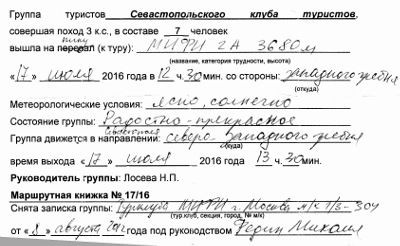 Группа туристов Севастопольского клуба туристов,
совершая поход 3 к.с., в составе 7 человек
пику
вышла на перевал (к туру): МИФИ 2А 3680м
(название, категория трудности, высота)
«17» июля 2016 года в 12 ч. 30 мин. со стороны: западного гребня
(откуда)
Метеорологические условия: ясно, солнечно
Состояние группы: Радостно-прекрасное
Группа движется в направлении: северо-западного гребня
(куда)
время выхода «17» июля 2016 года 13 ч. 30 мин.
Руководитель группы: Лосева Н.П.
Маршрутная книжка № 17/16
Снята записка группы: Турклуба МИФИ г. Москва м/к 1/3-304
(тур.клуб, секция, город, № м/к)
от «8» августа 2012 года под руководством Федин Михаил